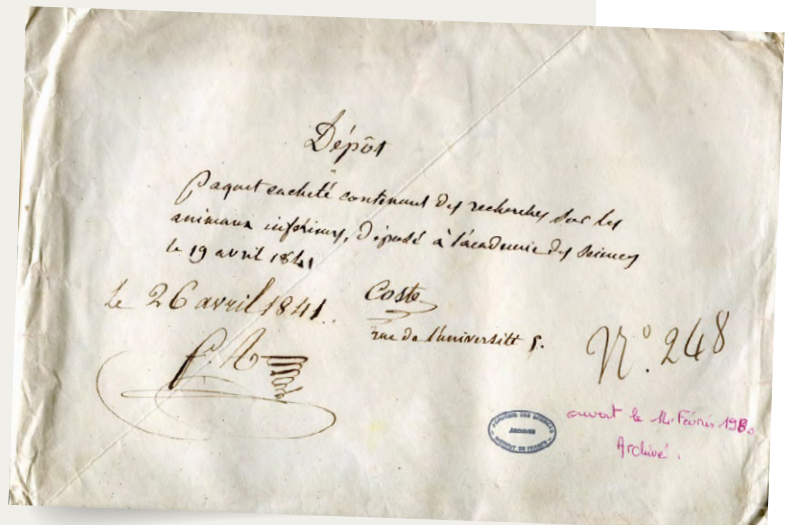 Dépôt
Paquet cacheté contenant des recherches sur les
animaux inférieurs, déposé à l'académie des sciences
le 19 avril 1841
le 26 avril 1841.
Coste
rue de l'université 5.
N.º 248
ACADÉMIE DES SCIENCES
ARCHIVES
INSTITUT DE FRANCE
ouvert le 14 Février 1980
Archivé.